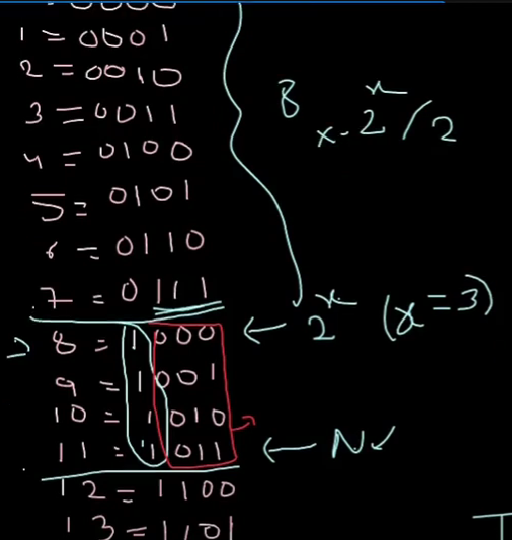 0 = 0000
1 = 0001
2 = 0010
3 = 0011
4 = 0100
5 = 0101
6 = 0110
7 = 0111
8 = 1000
9 = 1001
10 = 1010
11 = 1011
12 = 1100
13 = 1101
8
x · 2^x / 2
← 2^x (x = 3)
← N